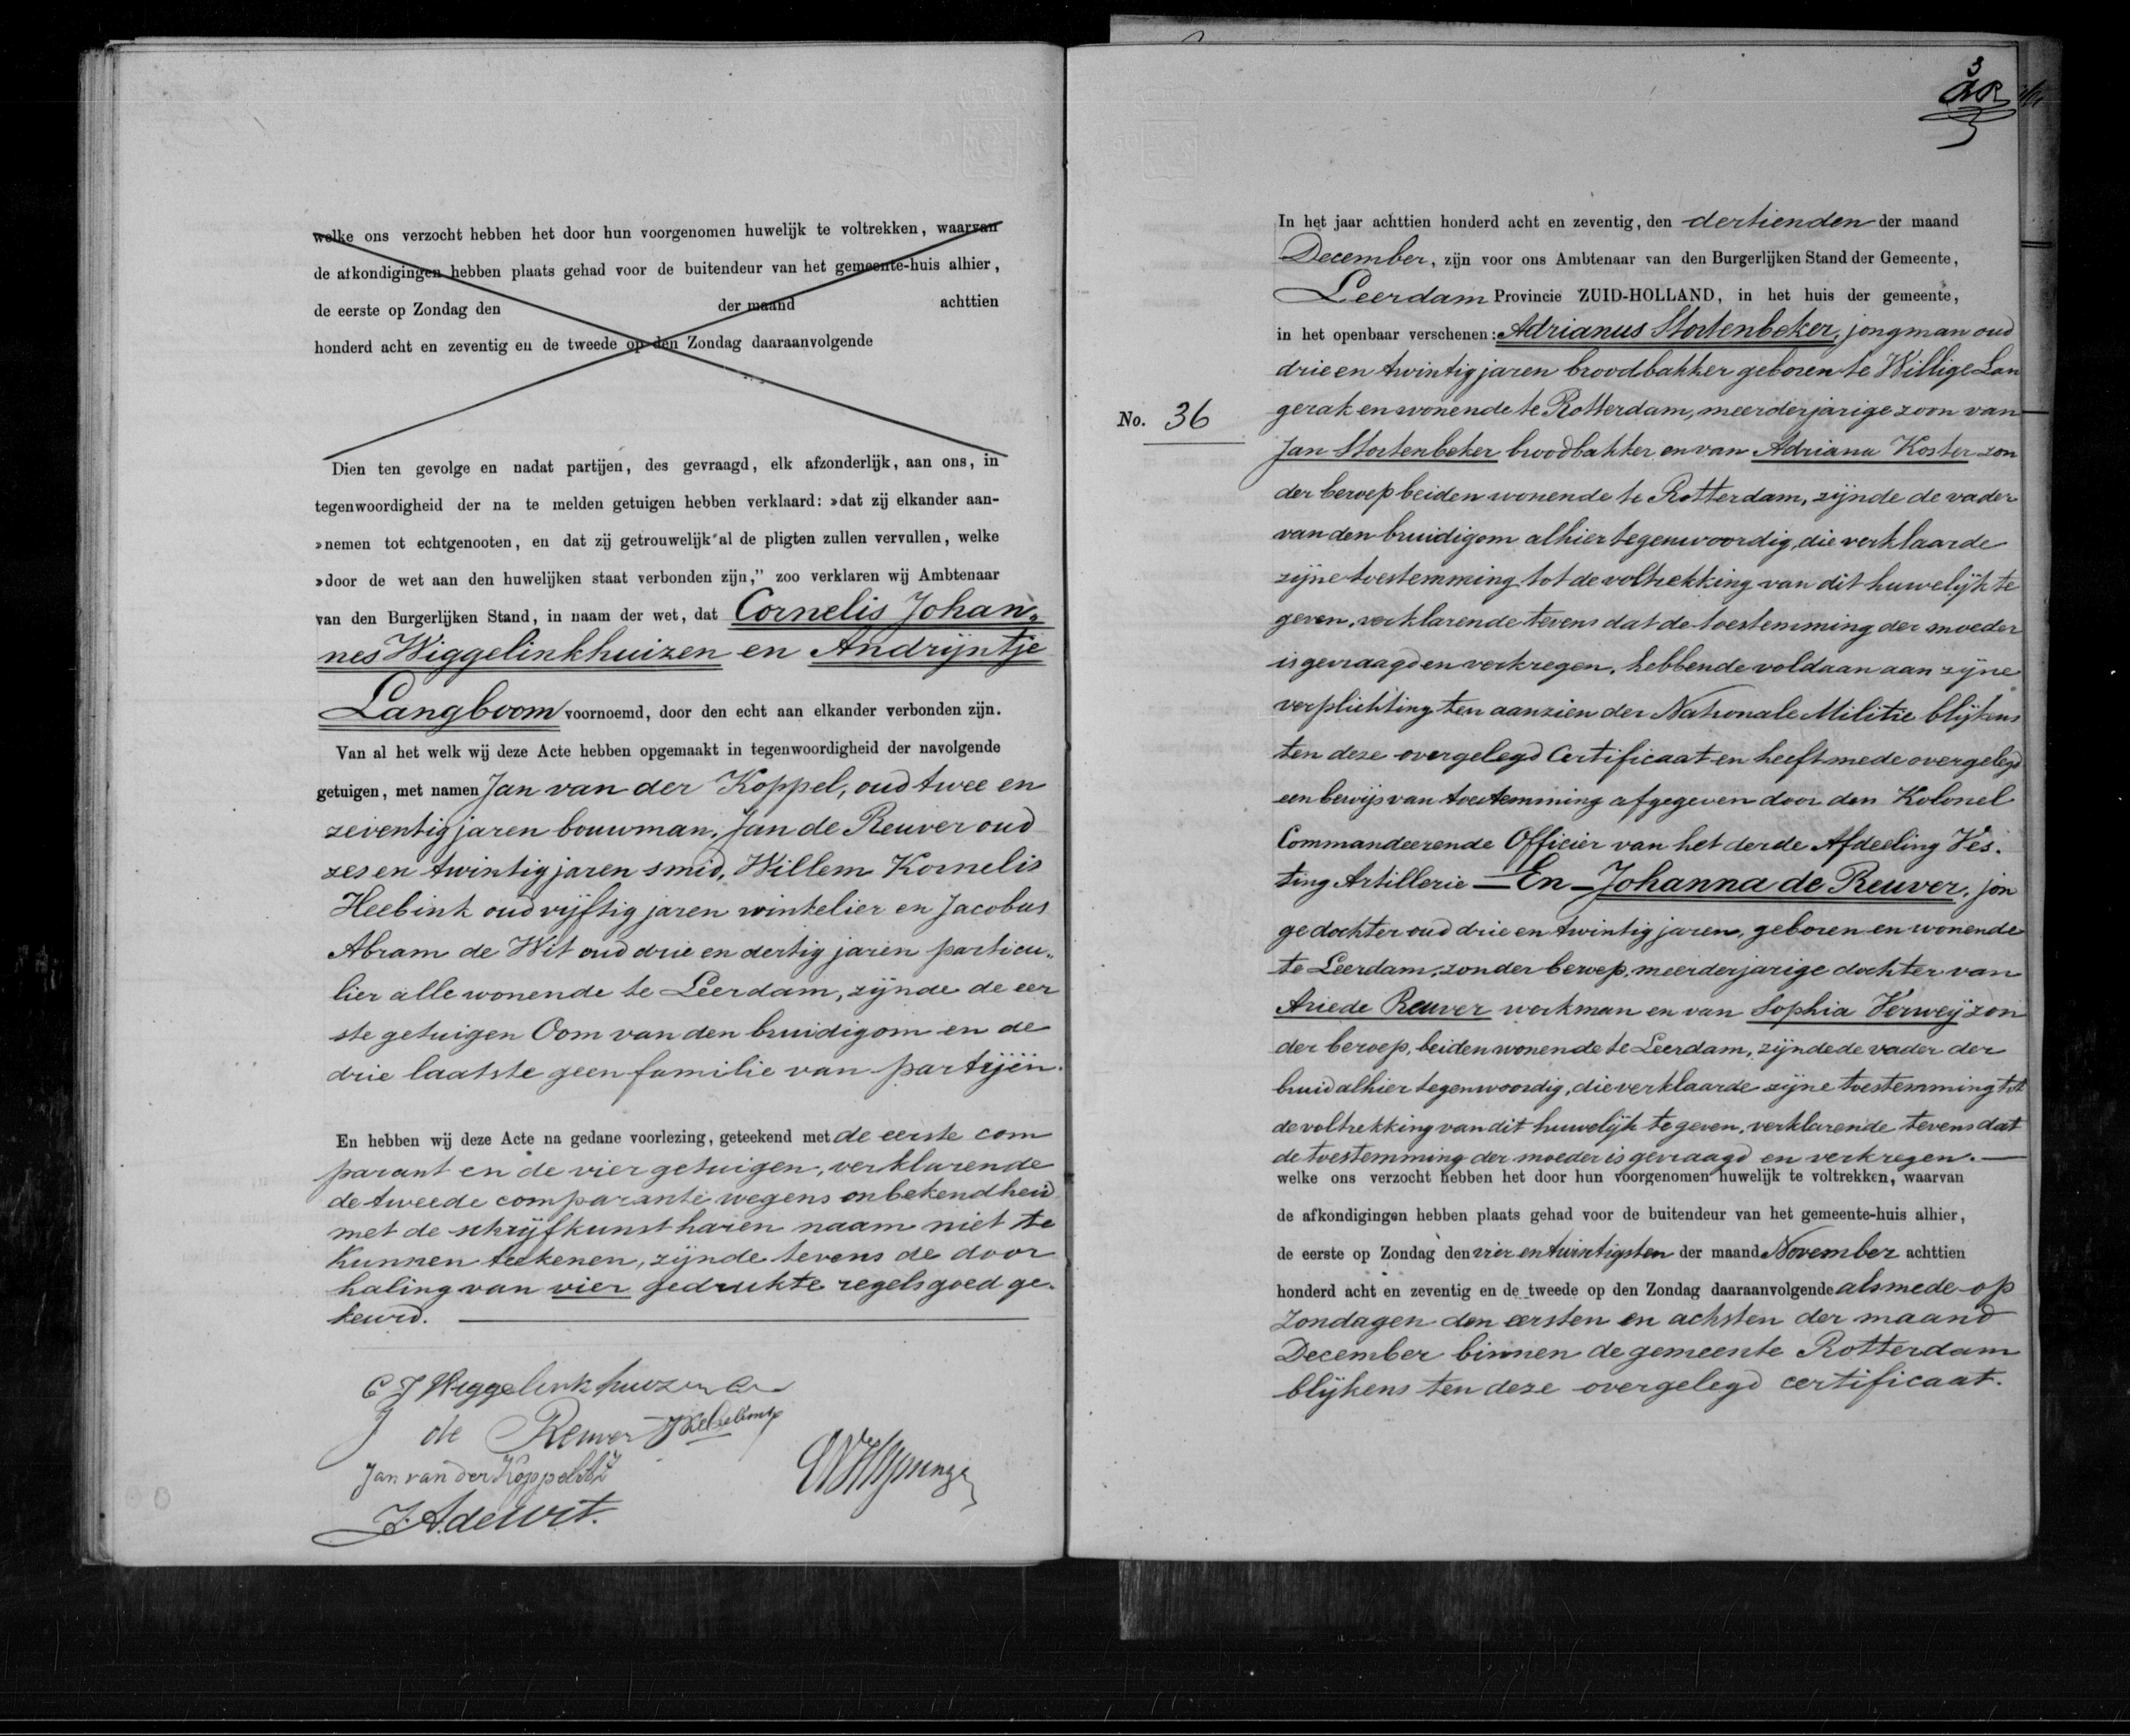 welke ons verzocht hebben het door hun voorgenomen huwelijk te voltrekken, waarvan
de afkondigingen hebben plaats gehad voor de buitendeur van het gemeente-huis alhier,
de eerste op Zondag den der maand achttien
honderd acht en zeventig en de tweede op den Zondag daaraanvolgende
Dien ten gevolge en nadat partijen, des gevraagd, elk afzonderlijk, aan ons, in
tegenwoordigheid der na te melden getuigen hebben verklaard: »dat zij elkander aan-
»nemen tot echtgenooten, en dat zij getrouwelijk al de pligten zullen vervullen, welke
»door de wet aan den huwelijken staat verbonden zijn," zoo verklaren wij Ambtenaar
van den Burgerlijken Stand, in naam der wet, dat Cornelis Johan=
nes Wiggelinkhuizen en Andrijntje
Langboom voornoemd, door den echt aan elkander verbonden zijn.
Van al het welk wij deze Acte hebben opgemaakt in tegenwoordigheid der navolgende
getuigen, met namen Jan van der Koppel, oud twee en
zeventig jaren bouwman, Jan de Reuver oud
zes en twintig jaren smid, Willem Kornelis
Heebink oud vijftig jaren winkelier en Jacobus
Abram de Wit oud drie en dertig jaren particu„
lier alle wonende te Leerdam, zijnde de eer
ste getuigen Oom van den bruidigom en de
drie laatste geen familie van partijen.
En hebben wij deze Acte na gedane voorlezing, geteekend met de eerste com
parant en de vier getuigen, verklarende
de tweede comparante wegens onbekendheid
met de schrijfkunst haren naam niet te
kunnen teekenen, zijnde tevens de door
haling van vier gedrukte regels goed ge-
keurd.
C J Wiggelinkhuizen
J de Reuver
Jan van der Koppel
J. A. de Wit.
3
In het jaar achttien honderd acht en zeventig, den dertienden der maand
December, zijn voor ons Ambtenaar van den Burgerlijken Stand der Gemeente,
Leerdam Provincie ZUID-HOLLAND, in het huis der gemeente,
in het openbaar verschenen: Adrianus Stortenbeker, jongman oud
drie en twintig jaren broodbakker geboren te Willige Lan
No. 36
gerak en wonende te Rotterdam, meerderjarige zoon van
Jan Stortenbeker broodbakker en van Adriana Koster zon
der beroep beiden wonende te Rotterdam, zijnde de vader
van den bruidigom alhier tegenwoordig, die verklaarde
zijne toestemming tot de voltrekking van dit huwelijk te
geven, verklarende tevens dat de toestemming der moeder
is gevraagd en verkregen, hebbende voldaan aan zijne
verplichting ten aanzien der Nationale Militie blijkens
ten deze overgelegd Certificaat en heeft mede overgelegd
een bewijs van toestemming afgegeven door den Kolonel
Commandeerende Officier van het derde Afdeeling Ves.
ting Artillerie — En — Johanna de Reuver, jon
ge dochter oud drie en twintig jaren, geboren en wonende
te Leerdam, zonder beroep, meerderjarige dochter van
Arie de Reuver werkman en van Sophia Verweij zon
der beroep, beiden wonende te Leerdam, zijnde de vader der
bruid alhier tegenwoordig, die verklaarde zijne toestemming tot
de voltrekking van dit huwelijk te geven, verklarende tevens dat
de toestemming der moeder is gevraagd en verkregen. —
welke ons verzocht hebben het door hun voorgenomen huwelijk te voltrekken, waarvan
de afkondigingen hebben plaats gehad voor de buitendeur van het gemeente-huis alhier,
de eerste op Zondag den vier en twintigsten der maand November achttien
honderd acht en zeventig en de tweede op den Zondag daaraanvolgende alsmede op
Zondagen den eersten en achsten der maand
December binnen de gemeente Rotterdam
blijkens ten deze overgelegd certificaat.